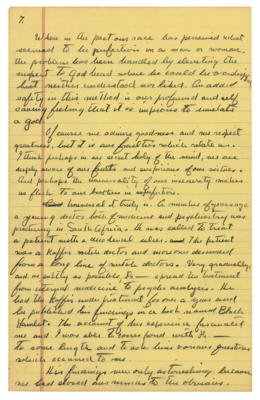 7.
When in the past our race has perceived what
seemed to be perfection in a man or woman,
the problem has been handled by elevating the
suspect to God head where he could be worshiped
but neither understood nor liked. An added
safety in this method is our profound and self
saving feeling that it is impious to emulate
a god.
Of course we admire goodness and we respect
greatness, but it is our frailties which relate us.
I think perhaps in our secret body of the mind, we are
deeply aware of our faults and suspicious of our virtues.
And perhaps the universality of our insecurity makes
us flock to our brothers in imperfection.
Universal it truly is. A number of years ago
a young doctor both of medicine and psychiatry was
practicing in South Africa. He was called to treat
a patient with a duodenal ulcer. The patient
was a Kaffir witch doctor and moreover descended
from a long line of witch doctors. Very gradually,
and as subtly as possible, Dr — spread the treatment
from internal medicine to psycho analysis. He
had the Kaffir under treatment for over a year and
he published his findings in a book named Black
Hamlet. The account of his experience fascinated
me and I was able to correspond with Dr —
to some length and to ask him various questions
which occurred to me.
His findings were only astonishing because
we had closed our minds to the obvious.